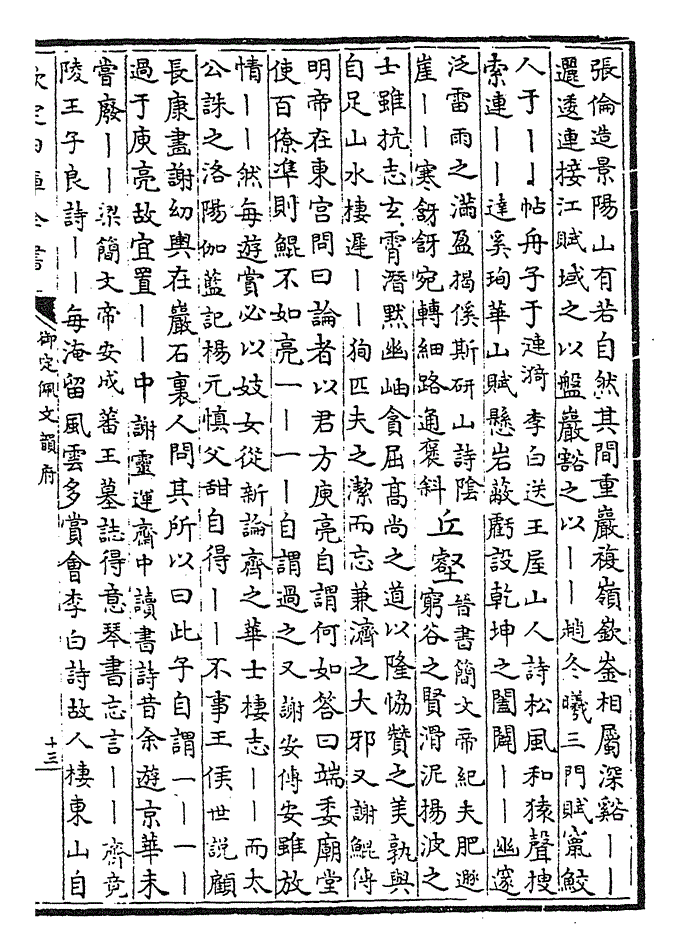 張倫造景陽山有若自然其間重巖複嶺嶔崟相屬深谿丨丨
邐逶連接江賦域之以盤巖豁之以丨丨趙冬曦三門賦窮鮫
人于丨丨帖舟子于漣漪李白送王屋山人詩松風和猿聲搜
索連丨丨達奚珣華山賦懸岩蔽虧設乾坤之闔闢丨丨幽邃
泛雷雨之滿盈揭傒斯研山詩陰
崖丨丨寒谽谺宛轉細路通褒斜
丘壑
晉書簡文帝紀夫肥遯
窮谷之賢滑泥揚波之
士雖抗志玄霄潛默幽岫貪屈高尚之道以隆恊贊之美孰與
自足山水棲遲丨丨狥匹夫之潔而忘兼濟之大邪又謝鯤傳
明帝在東宫問曰論者以君方庾亮自謂何如答曰端委廟堂
使百僚準則鯤不如亮一丨一丨自謂過之又謝安傳安雖放
情丨丨然每遊賞必以妓女從新論齊之華士棲志丨丨而太
公誅之洛陽伽藍記楊元慎父甜自得丨丨不事王侯世說顧
長康畫謝幼輿在巖石裏人問其所以曰此子自謂一丨一丨
過于庾亮故宜置丨丨中謝靈運齋中讀書詩昔余遊京華未
嘗廢丨丨梁簡文帝安成蕃王墓誌得意琴書忘言丨丨齊竟
陵王子良詩丨丨每淹留風雲多賞會李白詩故人棲東山自
欽定四庫全書
御定佩文韻府
十三